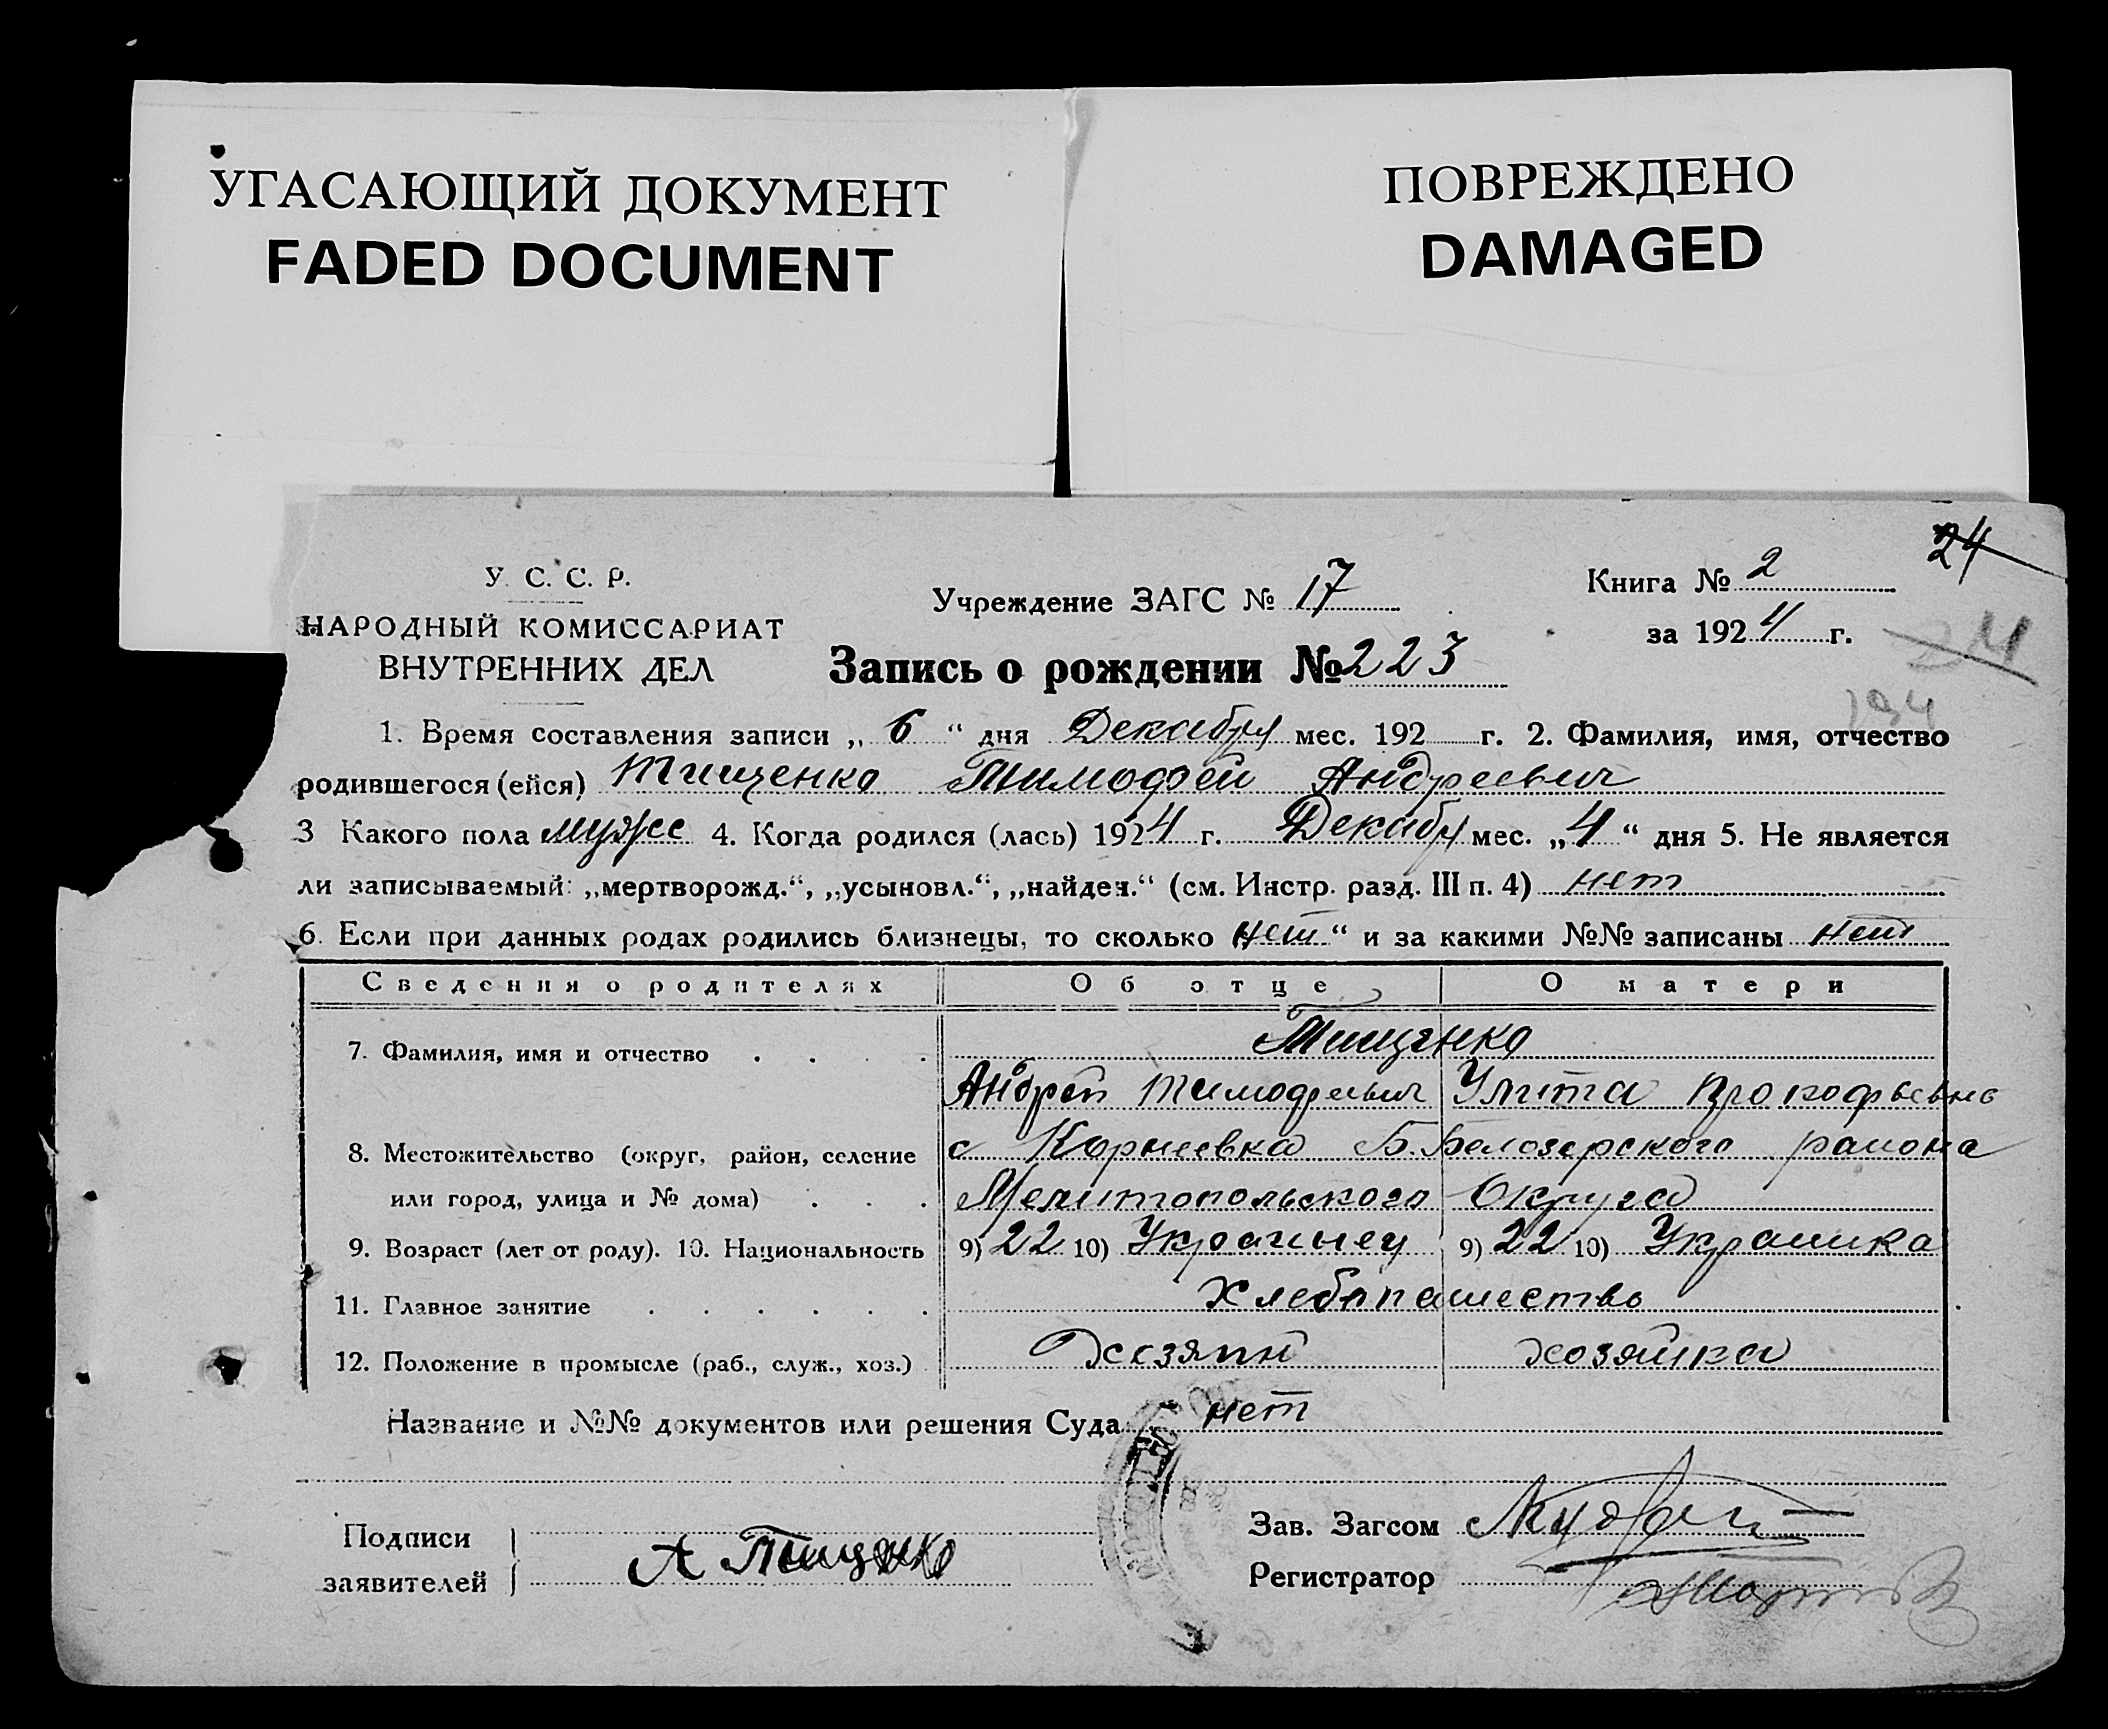 УГАСАЮЩИЙ ДОКУМЕНТ
FADED DOCUMENT
ПОВРЕЖДЕНО
DAMAGED
24
У. С. С. Р.
НАРОДНЫЙ КОМИССАРИАТ
ВНУТРЕННИХ ДЕЛ
Учреждение ЗАГС № 17
Книга № 2
за 1924 г.
24
Запись о рождении № 223
194
1. Время составления записи „6“ дня Декабря мес. 192 г. 2. Фамилия, имя, отчество
родившегося (ейся) Тищенко Тимофей Андреевич
3 Какого пола мужс 4. Когда родился (лась) 1924 г. Декабря мес. „4“ дня 5. Не является
ли записываемый: „мертворожд.“, „усыновл.“, „найден.“ (см. Инстр. разд. III п. 4) нет
6. Если при данных родах родились близнецы, то сколько нет“ и за какими №№ записаны нет
Сведения о родителях Об отце О матери
7. Фамилия, имя и отчество . . . . Тищенко
Андрей Тимофеевич Улита Прокофьевна
8. Местожительство (округ, район, селение с Корнеевка Б. Белозерского района
или город, улица и № дома) . . . Мелитопольского Округа
9. Возраст (лет от роду). 10. Национальность 9) 22 10) Украинец 9) 22 10) Украинка
11. Главное занятие . . . . . . Хлебопашество
12. Положение в промысле (раб., служ., хоз.) Хозяин хозяйка
Название и №№ документов или решения Суда нет
Подписи
заявителей
А Тищенко
Зав. Загсом
Регистратор